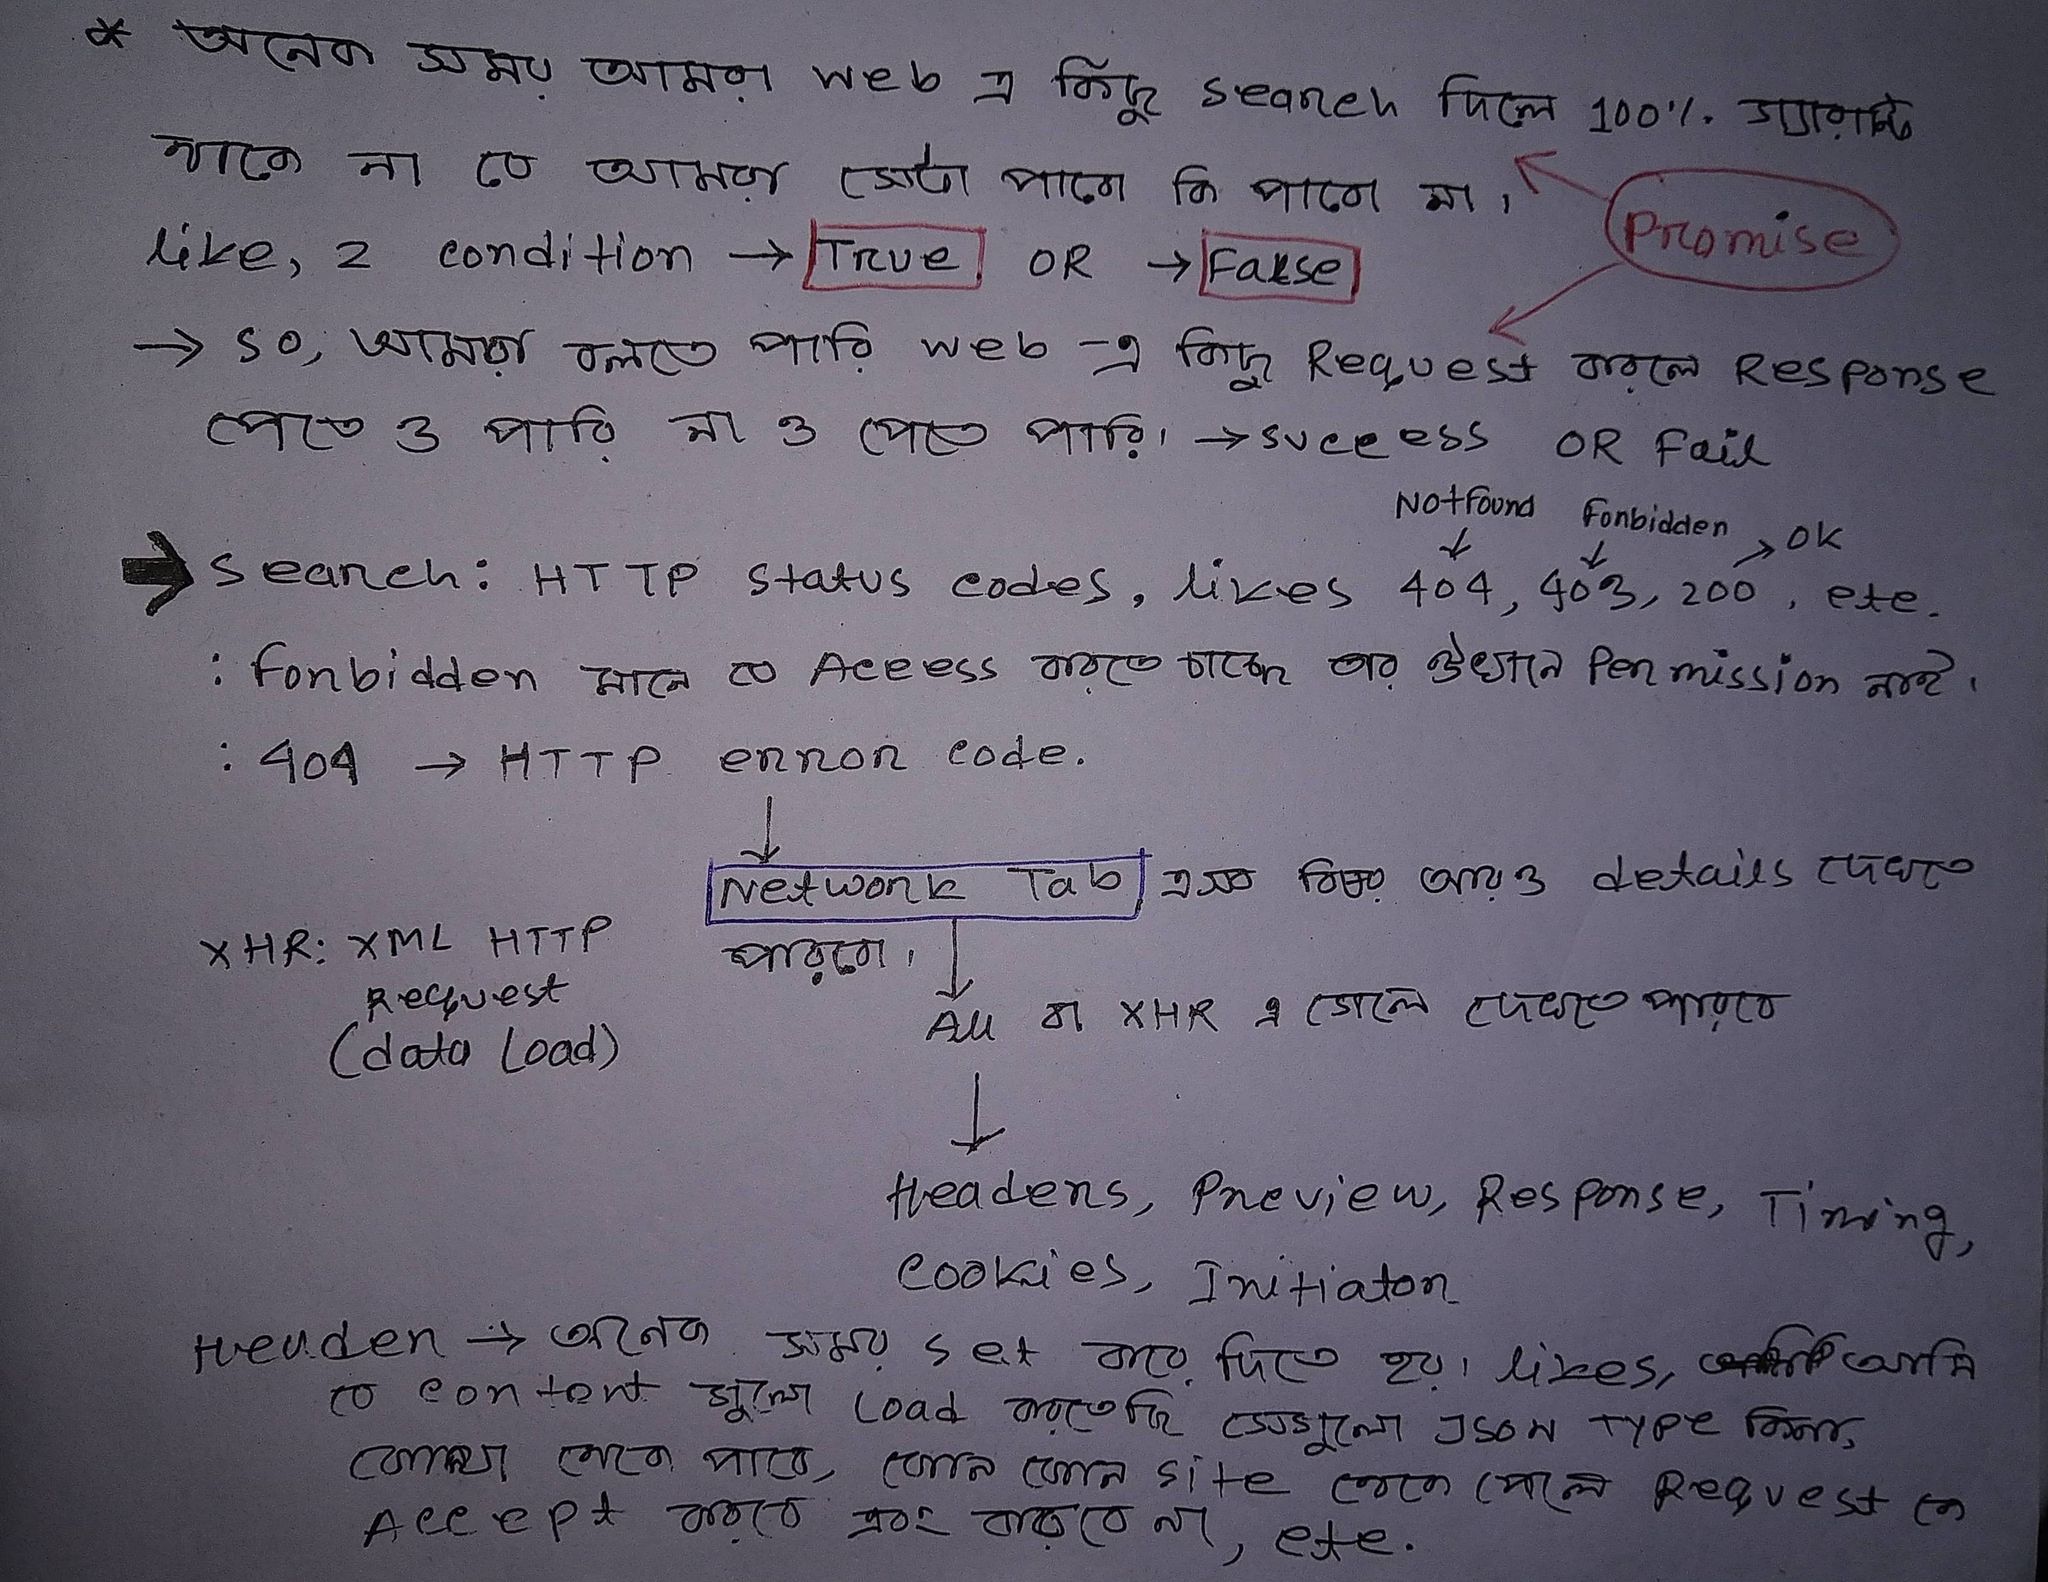 * অনেক সময় আমরা web এ কিছু search দিলে 100% গ্যারান্টি
থাকে না যে আমরা সেটা পাবো কি পাবো না।
Promise
like, 2 condition → True OR → False
→ so, আমরা বলতে পারি web -এ কিছু Request করলে Response
পেতে ও পারি না ও পেতে পারি। → success OR Fail
Not found Forbidden OK
➔ search: HTTP status codes, likes 404, 403, 200, etc.
: Forbidden মানে যে Access করতে চাচ্ছে তার ওখানে Permission নাই।
: 404 → HTTP error code.
Network Tab এসব বিষয় আরও details দেখতে
পারবো।
XHR: XML HTTP
Request
(data load)
All বা XHR এ গেলে দেখতে পারবে
Headers, Preview, Response, Timing,
Cookies, Initiator
Header → অনেক সময় set করে দিতে হয়। likes, আমি
যে content গুলো Load করতেছি সেগুলো JSON TYPE কিনা,
কোথা থেকে পাবে, কোন কোন site থেকে গেলে Request কে
Accept করবে এবং করবে না, etc.